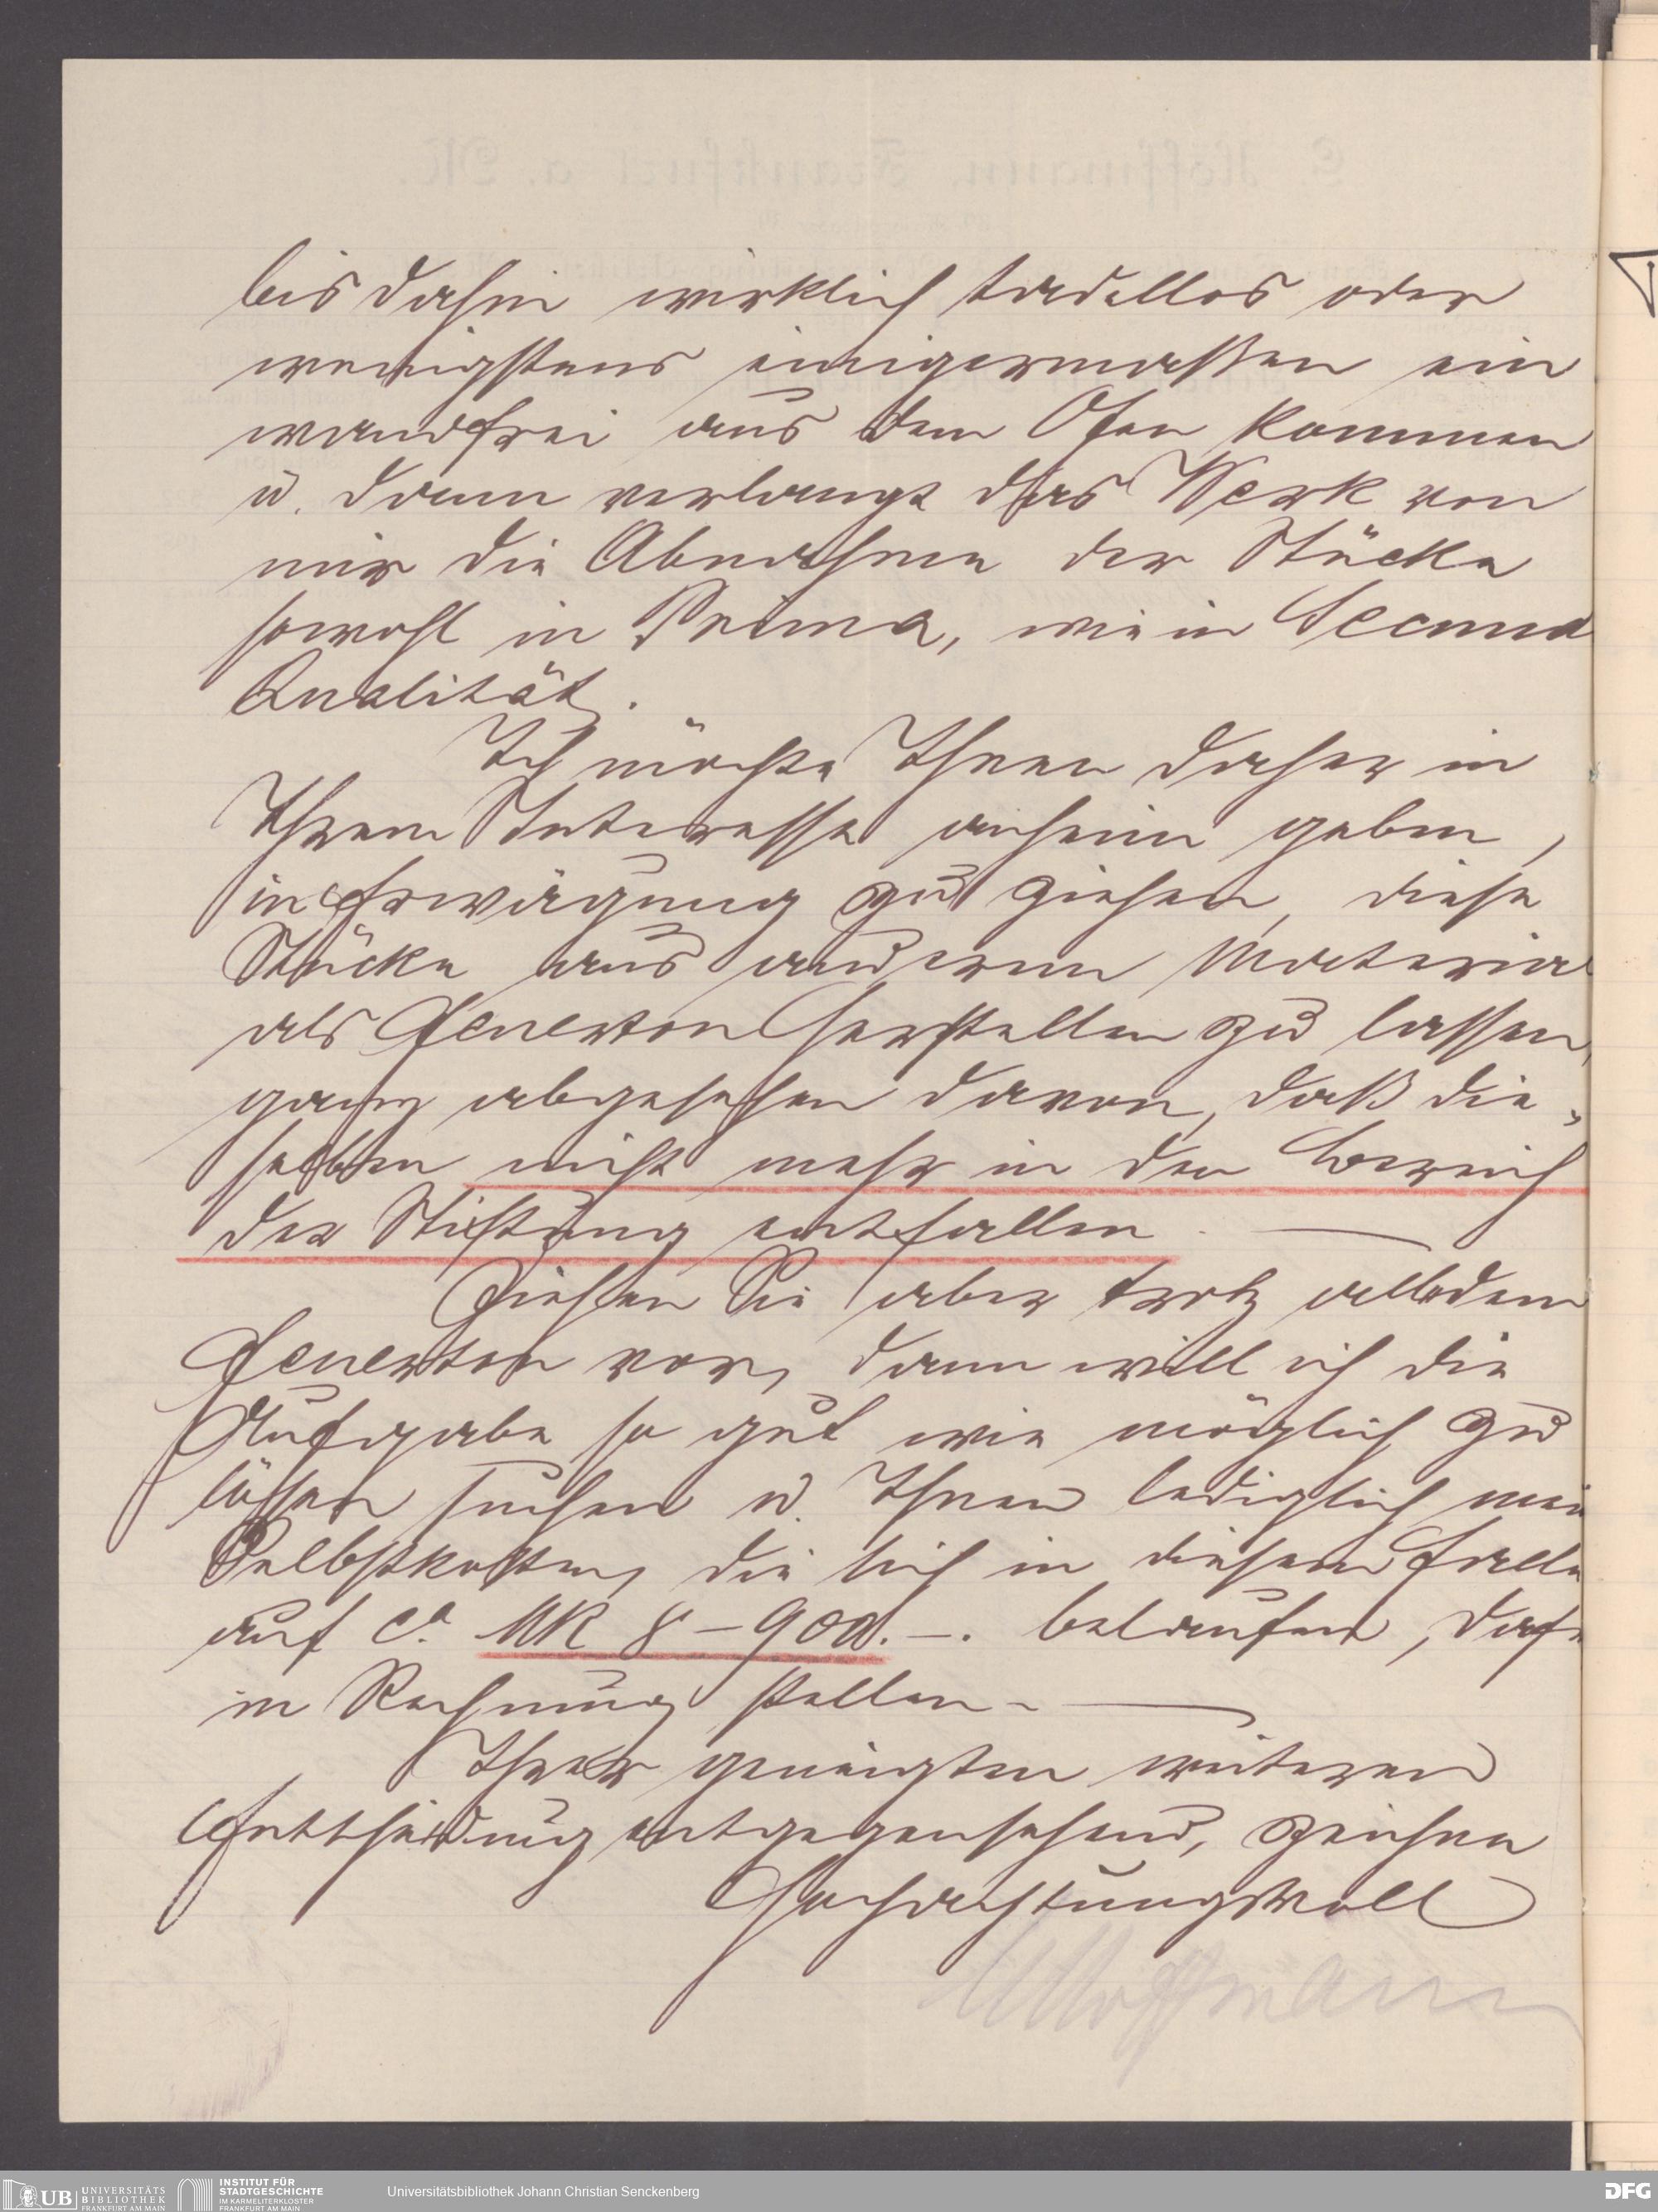 bis dahin wirklich tadellos oder
wenigstens einigermaßen ein
wandfrei aus dem Ofen kommen
u. dann verlangt das Werk von
mir die Abnahme der Stücke
sowohl in Prima, wie in Secunda
Qualität.
Ich möchte Ihnen daher in
Ihrem Interesse anheim geben,
in Erwägung zu ziehen, diese
Stücke aus anderem Material
als Feuerton herstellen zu lassen,
ganz abgesehen davon, daß die-
selben nicht mehr in den Bereich
der Stiftung entfallen. —
Ziehen Sie aber trotz alledem
Feuerton vor, dann will ich die
Aufgabe so gut wie möglich zu
lösen suchen u. Ihnen lediglich mein
Selbstkosten, die sich in diesem Falle
auf ca. MK 8–900.–. belaufen,
in Rechnung stellen. —
Ihrer geneigten weiteren
Entscheidung entgegensehend, zeichne
Hochachtungsvoll
Höffmann
UB UNIVERSITÄTS
BIBLIOTHEK
FRANKFURT AM MAIN
INSTITUT FÜR
STADTGESCHICHTE
IM KARMELITERKLOSTER
FRANKFURT AM MAIN
Universitätsbibliothek Johann Christian Senckenberg
DFG